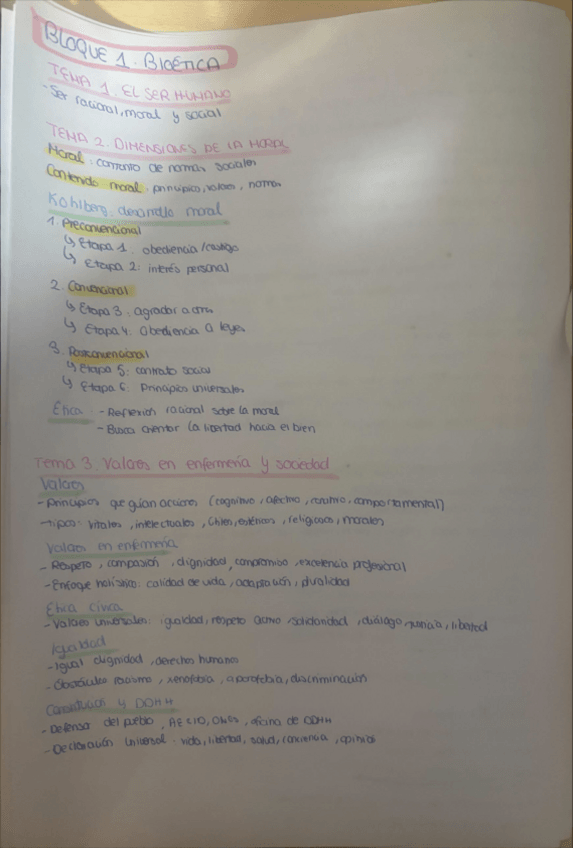 BLOQUE 1. BIOÉTICA
TEMA 1. EL SER HUMANO
- Ser racional, moral y social
TEMA 2. DIMENSIONES DE LA MORAL
Moral: conjunto de normas sociales
Contenido moral: principios, valores, normas
Kohlberg: desarrollo moral
1. Preconvencional
↳ Etapa 1: obediencia/castigo
↳ Etapa 2: interés personal
2. Convencional
↳ Etapa 3: agradar a otros
↳ Etapa 4: Obediencia a leyes
3. Postconvencional
↳ Etapa 5: contrato social
↳ Etapa 6: Principios universales
Ética: - Reflexión racional sobre la moral
- Busca orientar la libertad hacia el bien
Tema 3. Valores en enfermería y sociedad
Valores
- Principios que guían acciones (cognitivo, afectivo, conativo, comportamental)
- Tipos: vitales, intelectuales, estéticos, religiosos, morales
Valores en enfermería
- Respeto, compasión, dignidad, compromiso, excelencia profesional
- Enfoque holístico: calidad de vida, adaptación, pluralidad
Ética cívica
- Valores universales: igualdad, respeto activo, solidaridad, diálogo, justicia, libertad
Igualdad
- Igual dignidad, derechos humanos
- Obstáculos: racismo, xenofobia, aporofobia, discriminación
Constitución y DDHH
- Defensor del pueblo, ONGs, oficina de DDHH
- Declaración Universal: vida, libertad, salud, conciencia, opinión